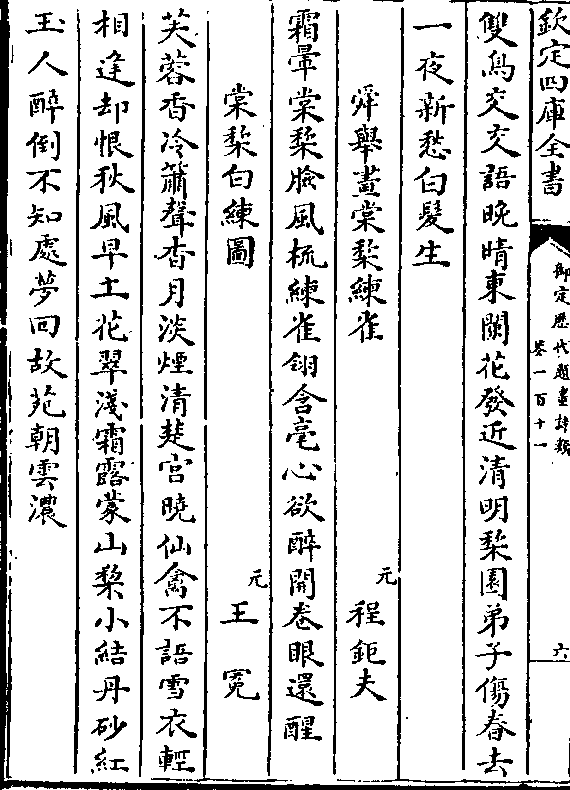 欽定四庫全書
御定歷代題畫詩類
卷一百十一
六
雙鳥交交語晚晴東闌花發近清明棃園弟子傷春去
一夜新愁白髮生
舜舉畫棠棃練雀
元
程鉅夫
霜暈棠棃臉風梳練雀翎含毫心欲醉開卷眼還醒
棠棃白練圖
元
王冕
芙蓉香冷簫聲杳月淡煙清楚宮曉仙禽不語雪衣輕
相逢却恨秋風早土花翠淺霜露蒙山棃小結丹砂紅
玉人醉倒不知處夢回故苑朝雲濃